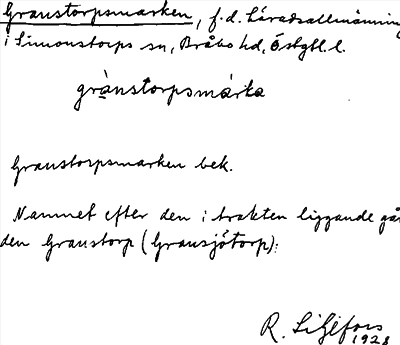 Granstorpsmarken, f.d. häradsallmänning
i Simonstorps sn, Bråbo hd, Östgtl. l.
grànstorpsmárka
Granstorpsmarken bek.
Namnet efter den i trakten liggande går
den Granstorp (Gransjötorp).
R. Liljefors
1928